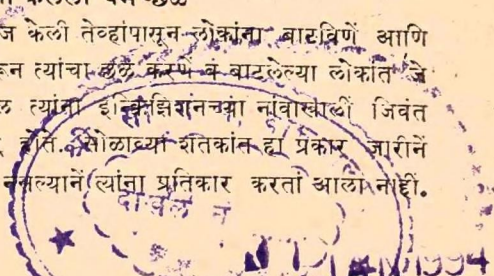 केलेला धर्मच्छळ
ज केली तेव्हांपासून लोकांना बाटविणें आणि
रून त्यांचा छळ करणें व बाटलेल्या लोकांत जे
ल त्यांना इन्क्विझिशनच्या नांवाखालीं जिवंत
होते. सोळाव्या शतकांत हा प्रकार जारीनें
नसल्यानें त्यांना प्रतिकार करतां आला नाहीं.
दाखल नं
1994